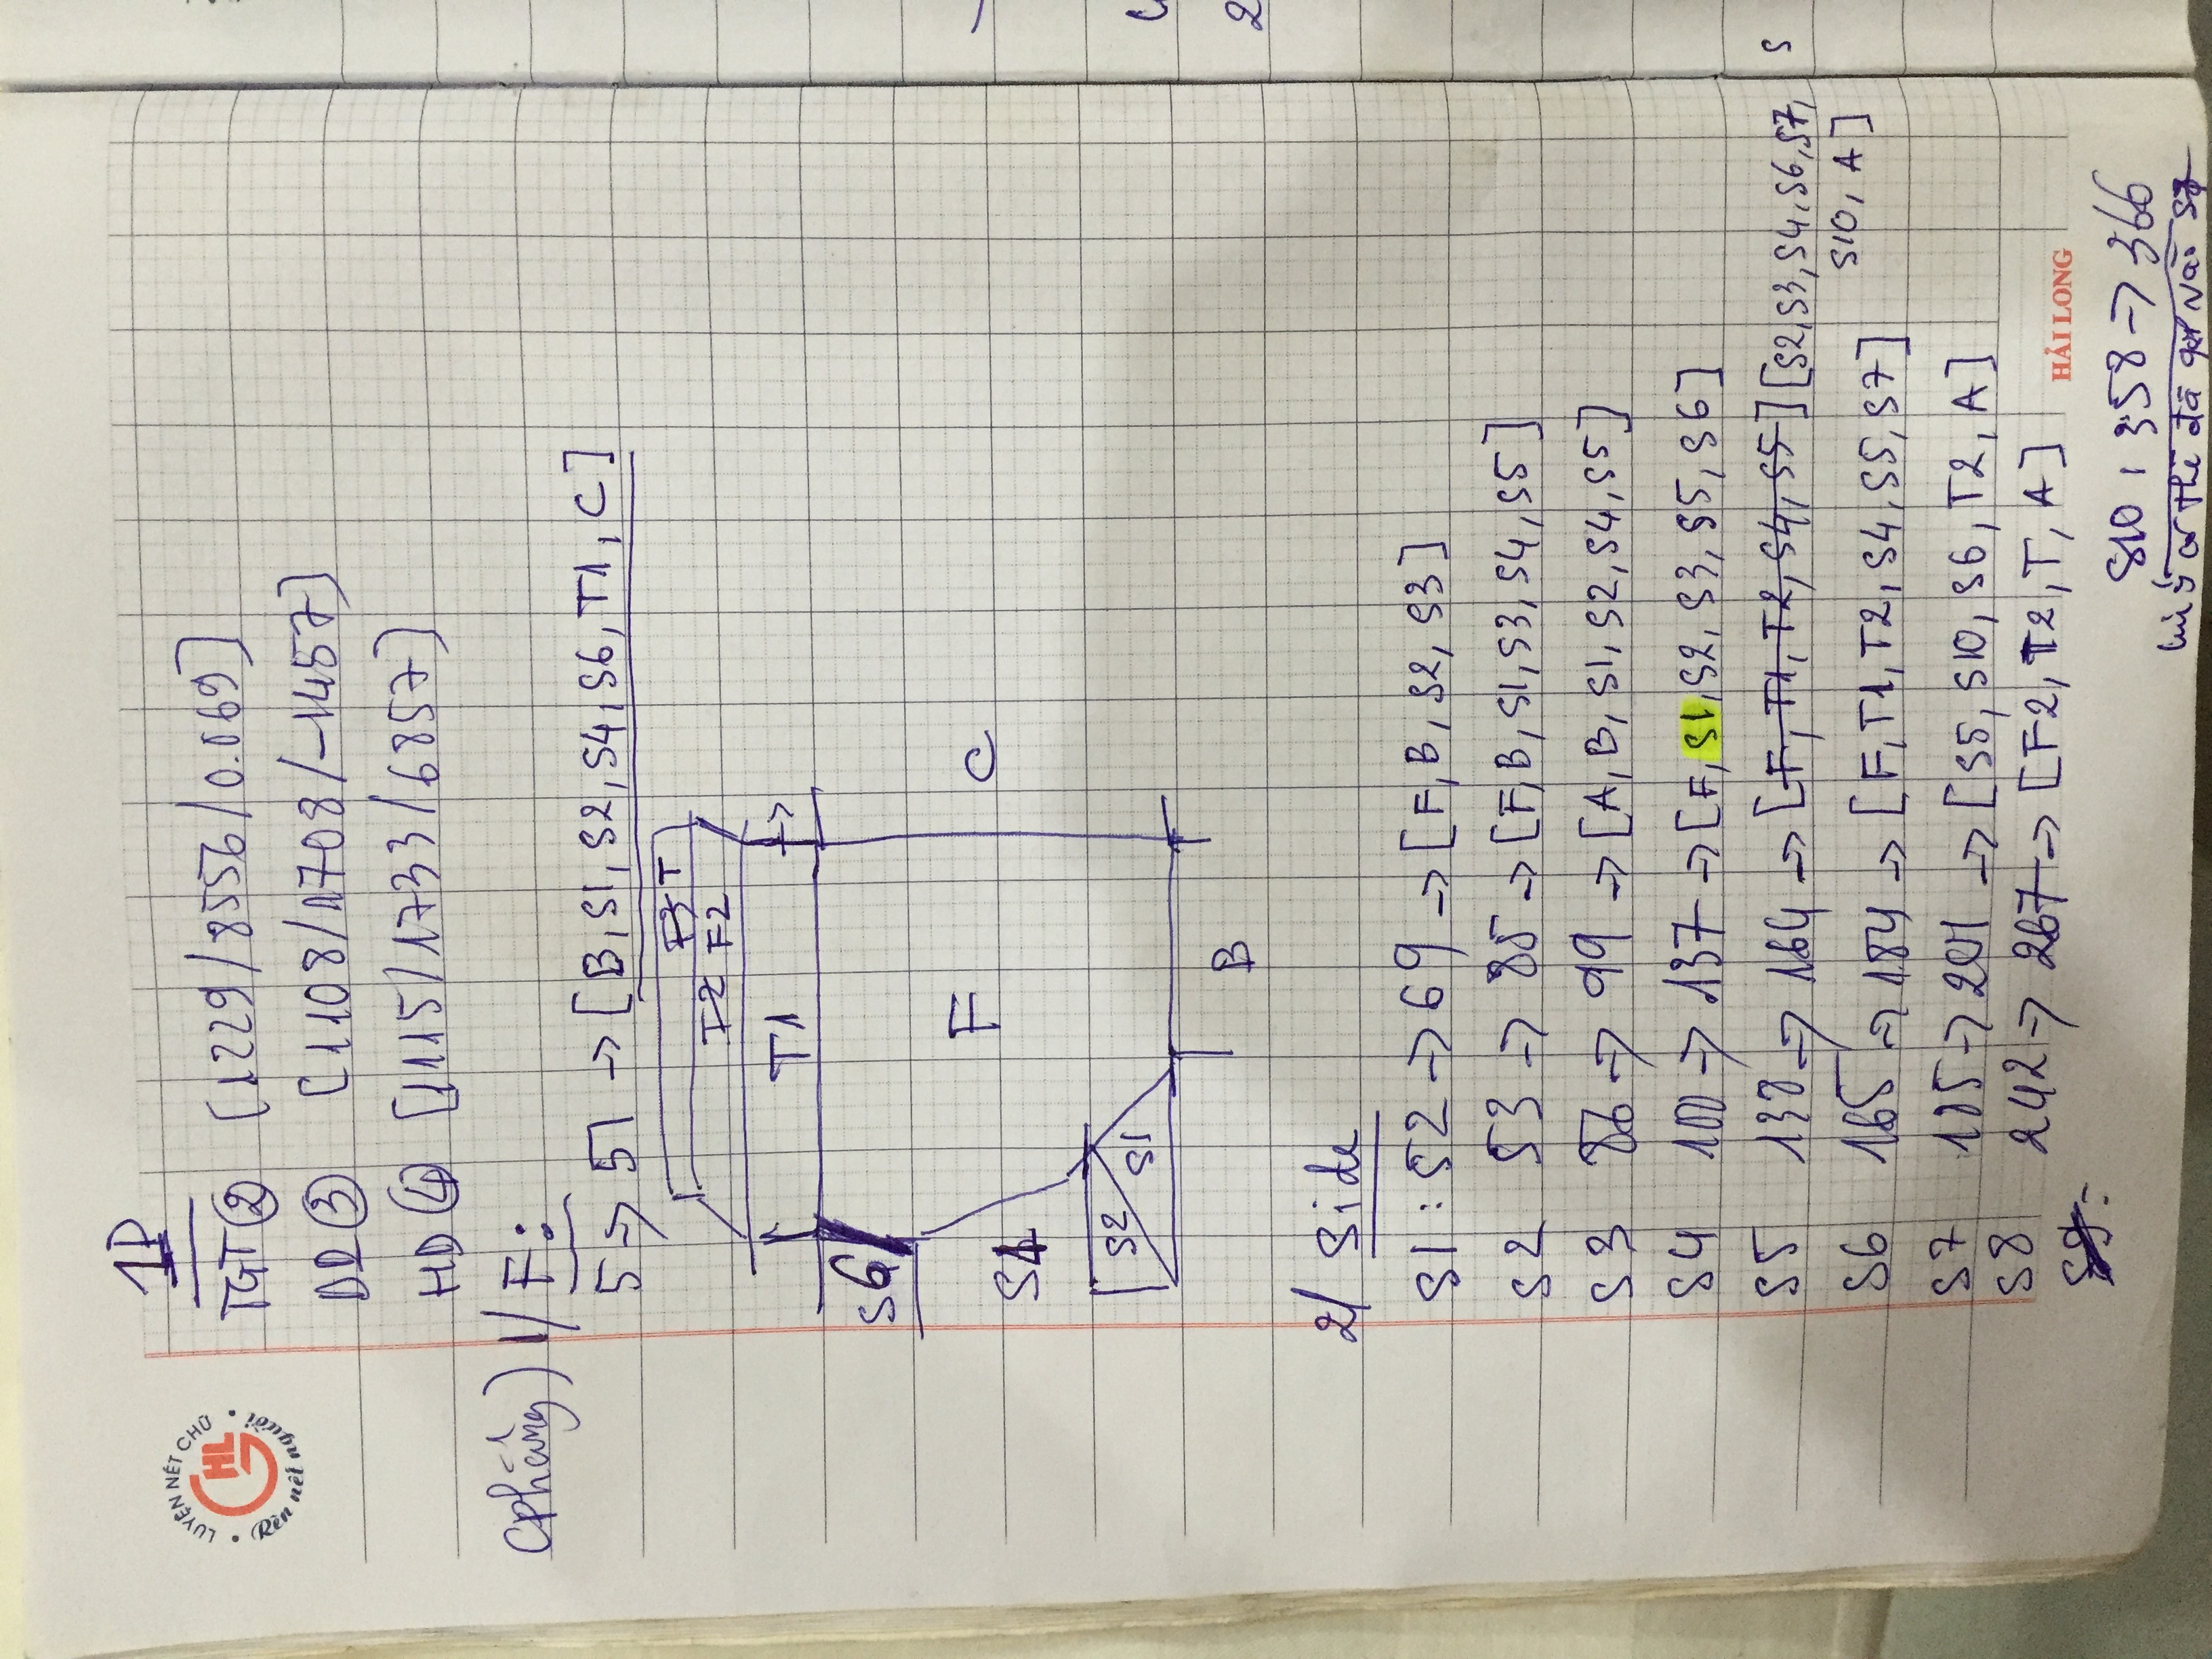 LUYỆN NÉT CHỮ
HL
Rèn nết người
1P
TGT ② [1229/8556/0.069]
DD ③ [1108/1708/-1457]
HD ④ [1115/1733/6857]
(Phẳng) 1/ F:
5 → 51 → [B, S1, S2, S4, S6, T1, C]
F3 T
T2 F2
T1
S6
F
C
S4
S2
S1
B
2/ Side
S1 : 52 → 69 → [F, B, S2, S3]
S2 53 → 85 → [F, B, S1, S3, S4, S5]
S3 86 → 99 → [A, B, S1, S2, S4, S5]
S4 100 → 137 → [F, S1, S2, S3, S5, S6]
S5 138 → 164 → [F, T1, T2, S4, S5] [S2, S3, S4, S6, S7,
S10, A]
S6 165 → 184 → [F, T1, T2, S4, S5, S7]
S7 185 → 201 → [S5, S10, S6, T2, A]
S8 242 → 267 → [F2, T2, T, A]
S9:
HẢI LONG
S10 : 358 → 366
ý có thể đã vào S7